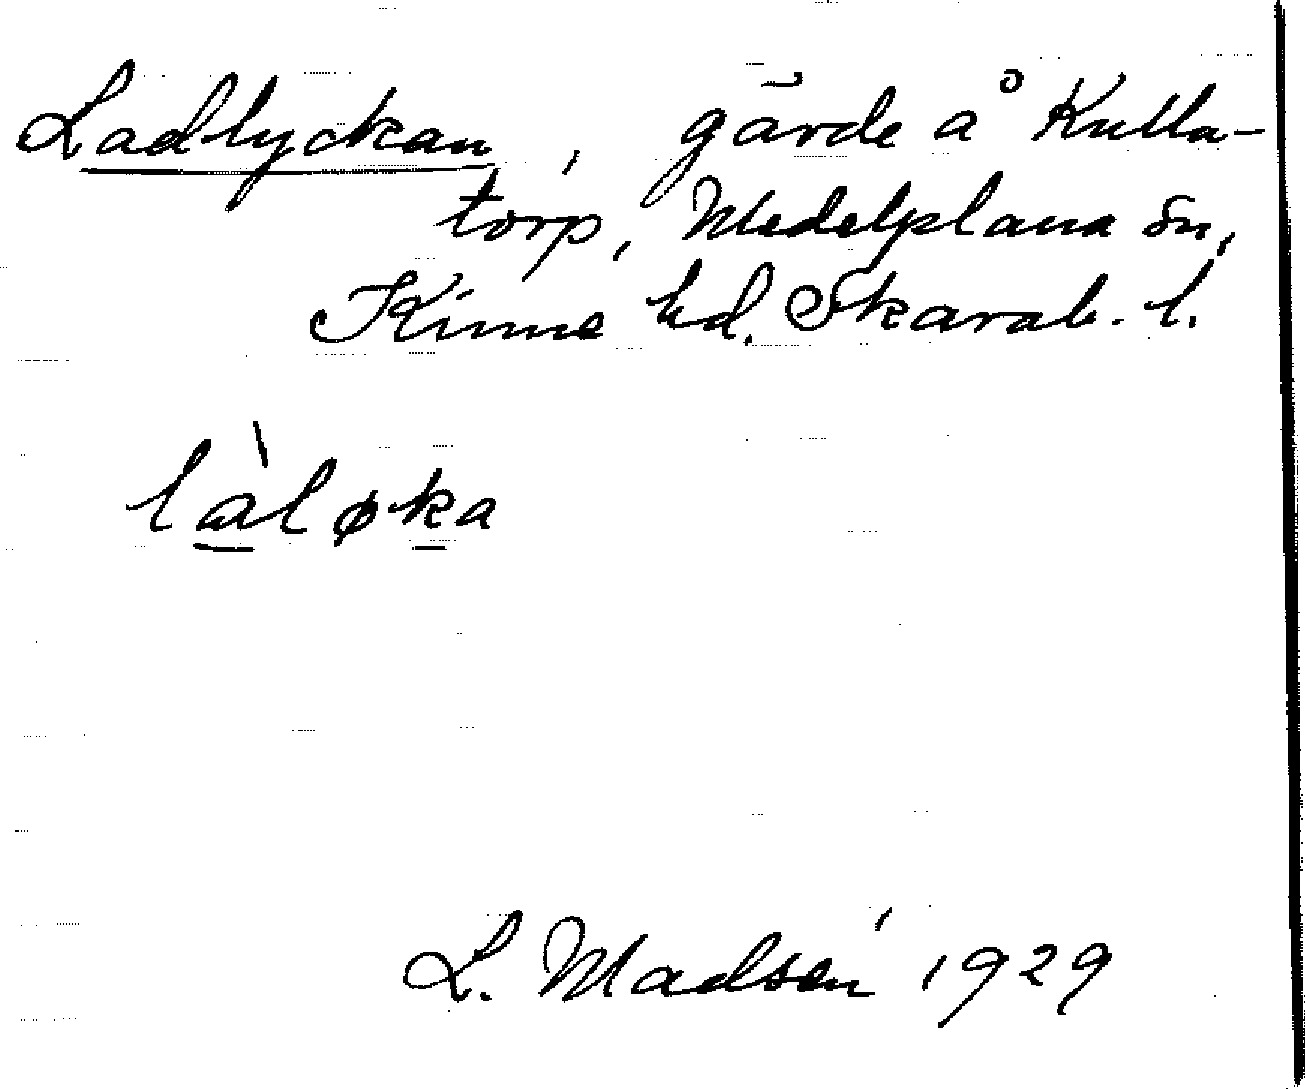 Ladlyckan, gärde å Kulla-
torp, Medelplana sn,
Kinne hd. Skarab. l.
làløka
L. Madsén 1929